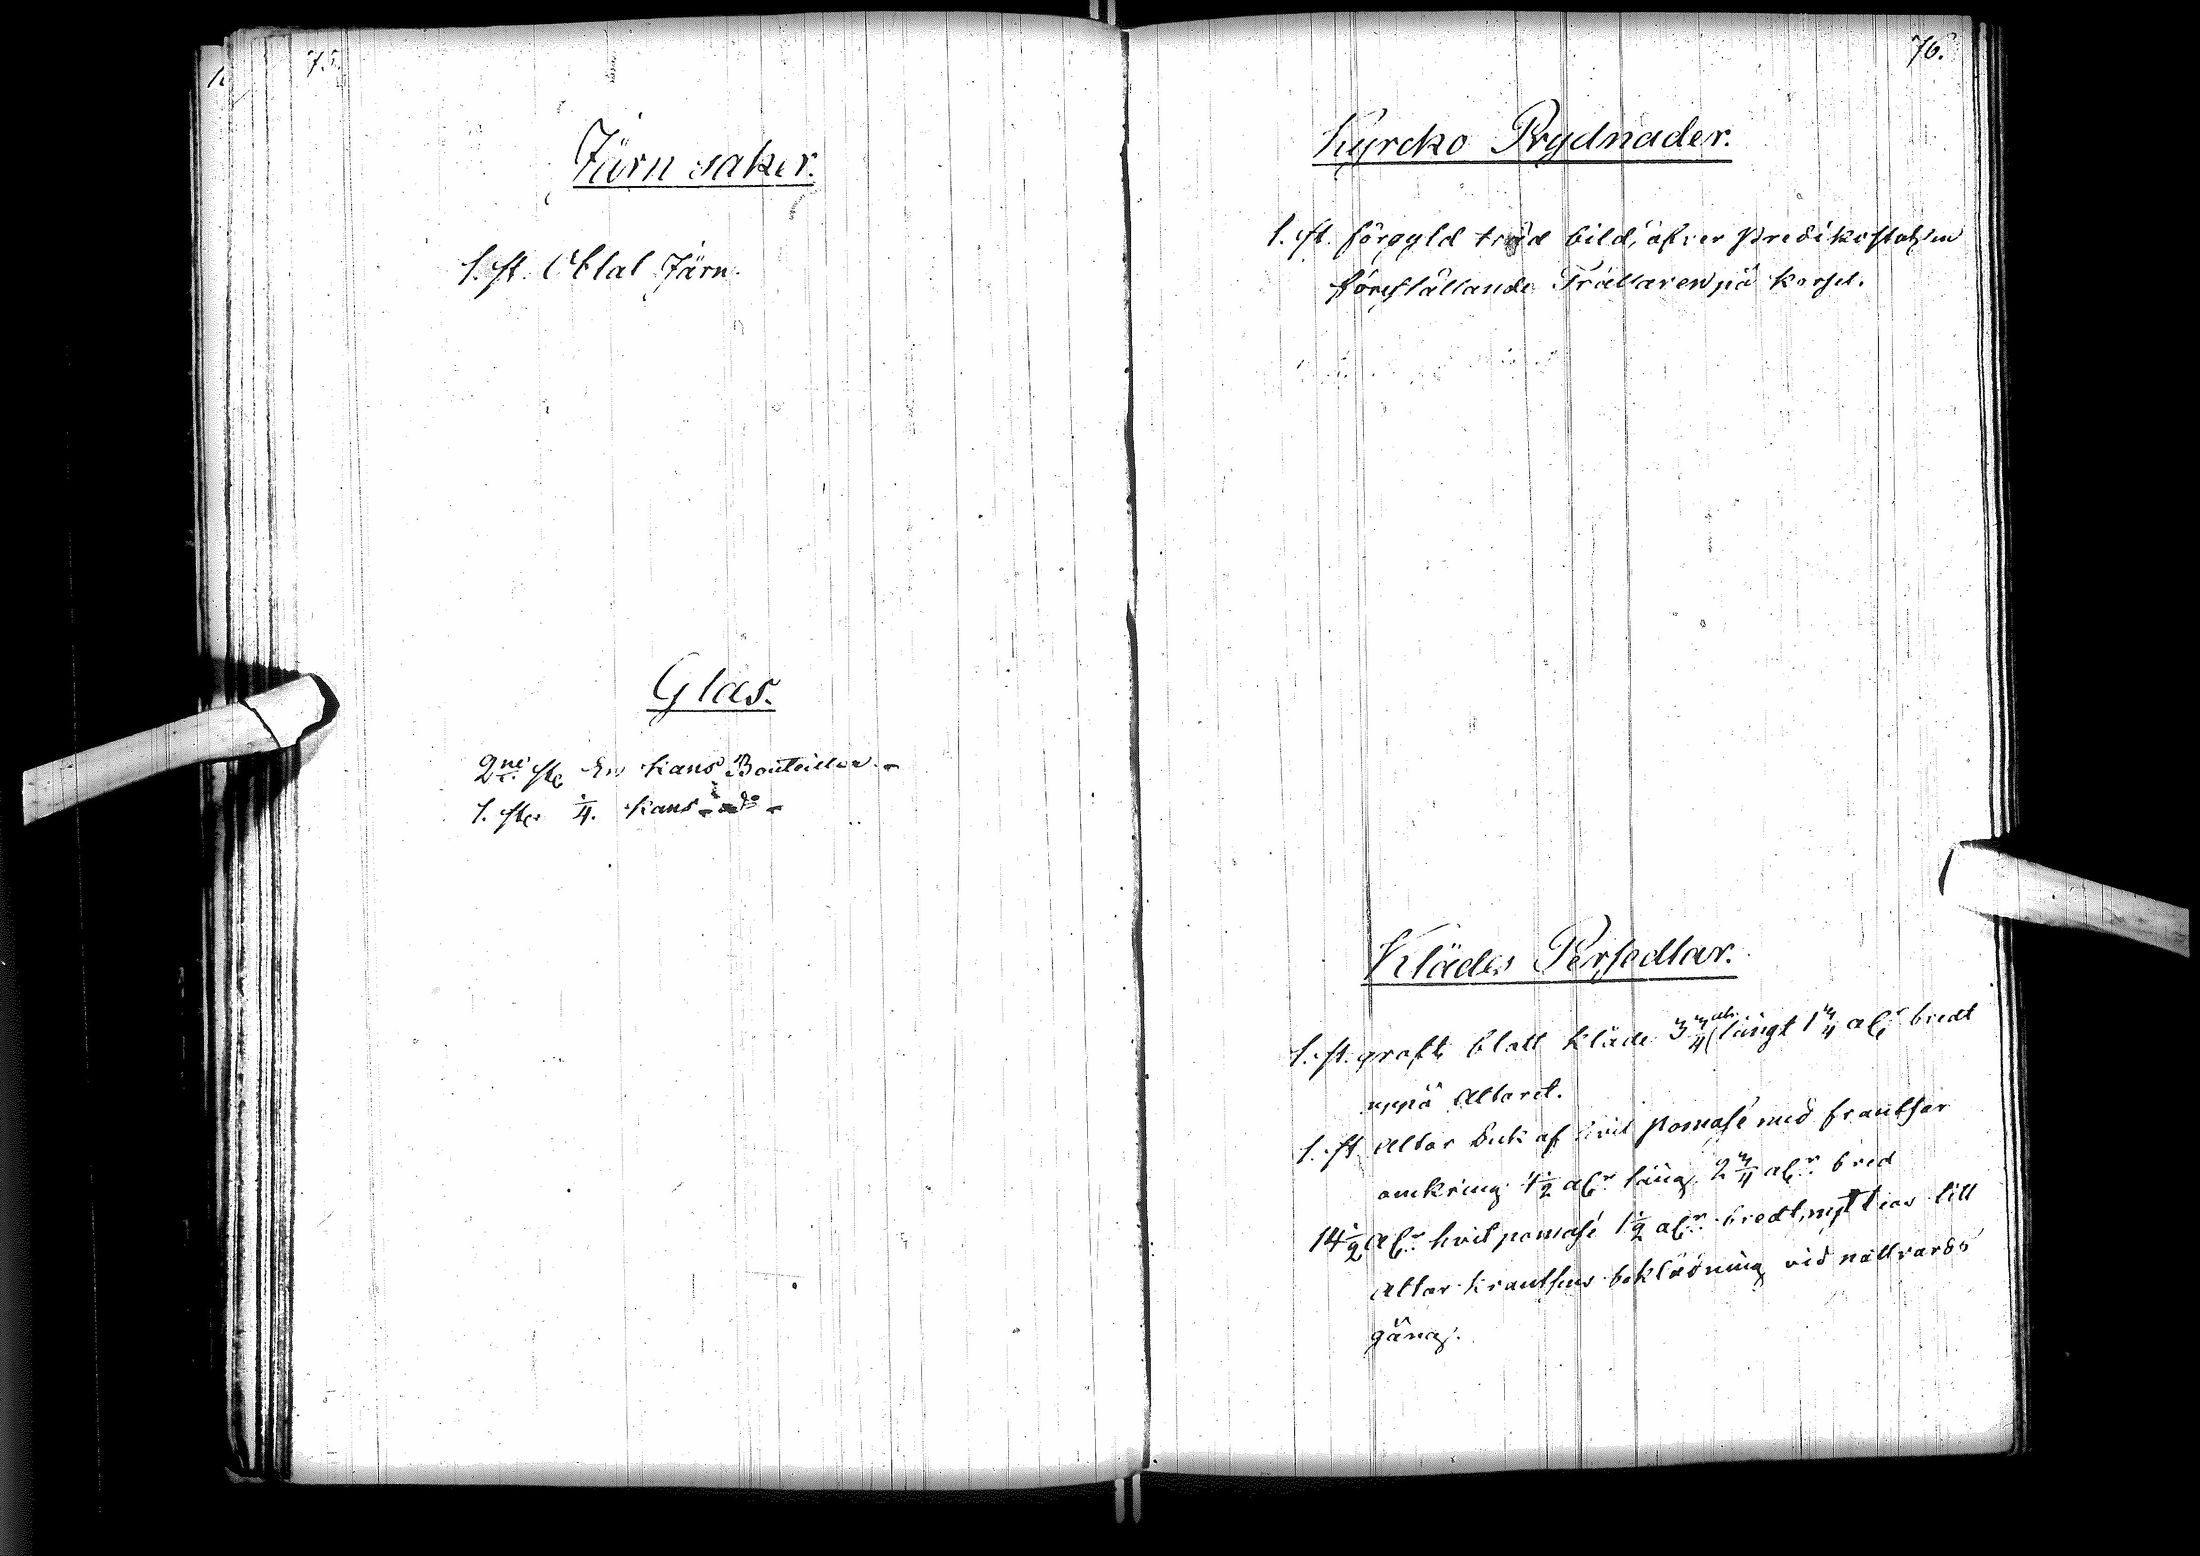 75.
Järn saker.
1. st. Oblat Järn.
Glas.
2ne st. En Kans Bouteiller.-
1. st. 1/4. Kans - do -
76.
Kyrcko Prydnader.
1. st. förgyld träd bild, öfver Predikostohlen
föreställande Frälsaren på korset.
Klädes Persedlar.
1. st. groft blått kläde 3 3/4 aln. långt 1 3/4 alnr bredt
uppå Altaret.
1. st. Altar Duk af hvit Pomasé med frantsar
omkring 4 1/2 alnr lång, 2 3/4 alnr. bred
14 1/2 Alnr. hvit pomasé 1 1/2 alnr. bredt, nyttias till
Altar krantsens beklädning vid nattvards
gång.